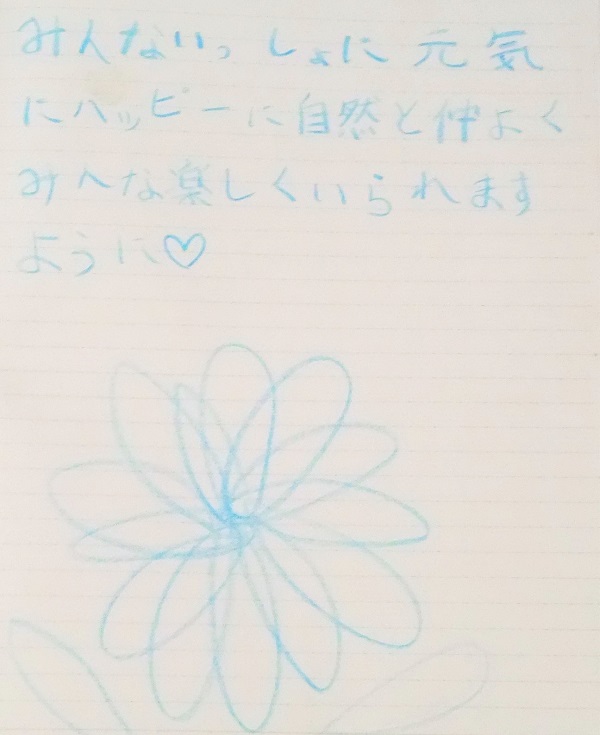 みんないっしょに元気
にハッピーに自然と仲よく
みんな楽しくいられます
ように♡